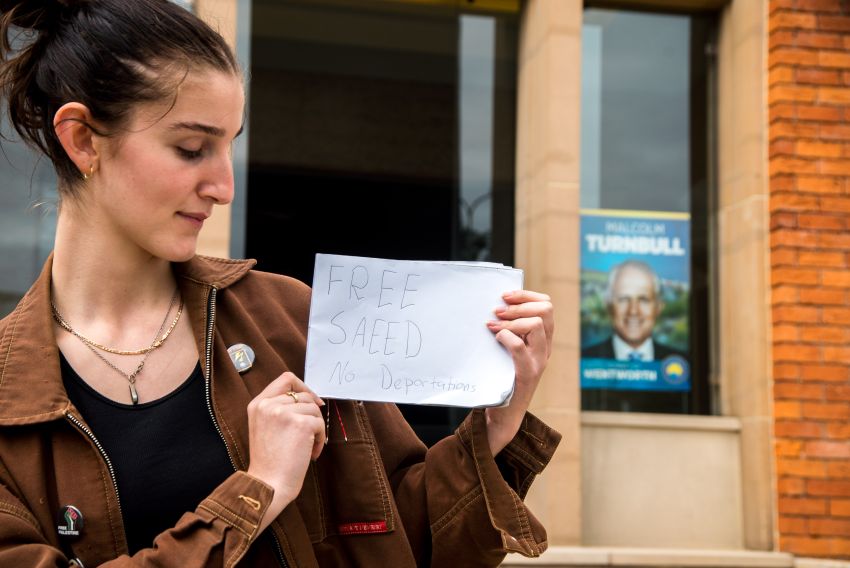 FREE
SAEED
No Deportations
MALCOLM
TURNBULL
WENTWORTH
FREE
PALESTINE